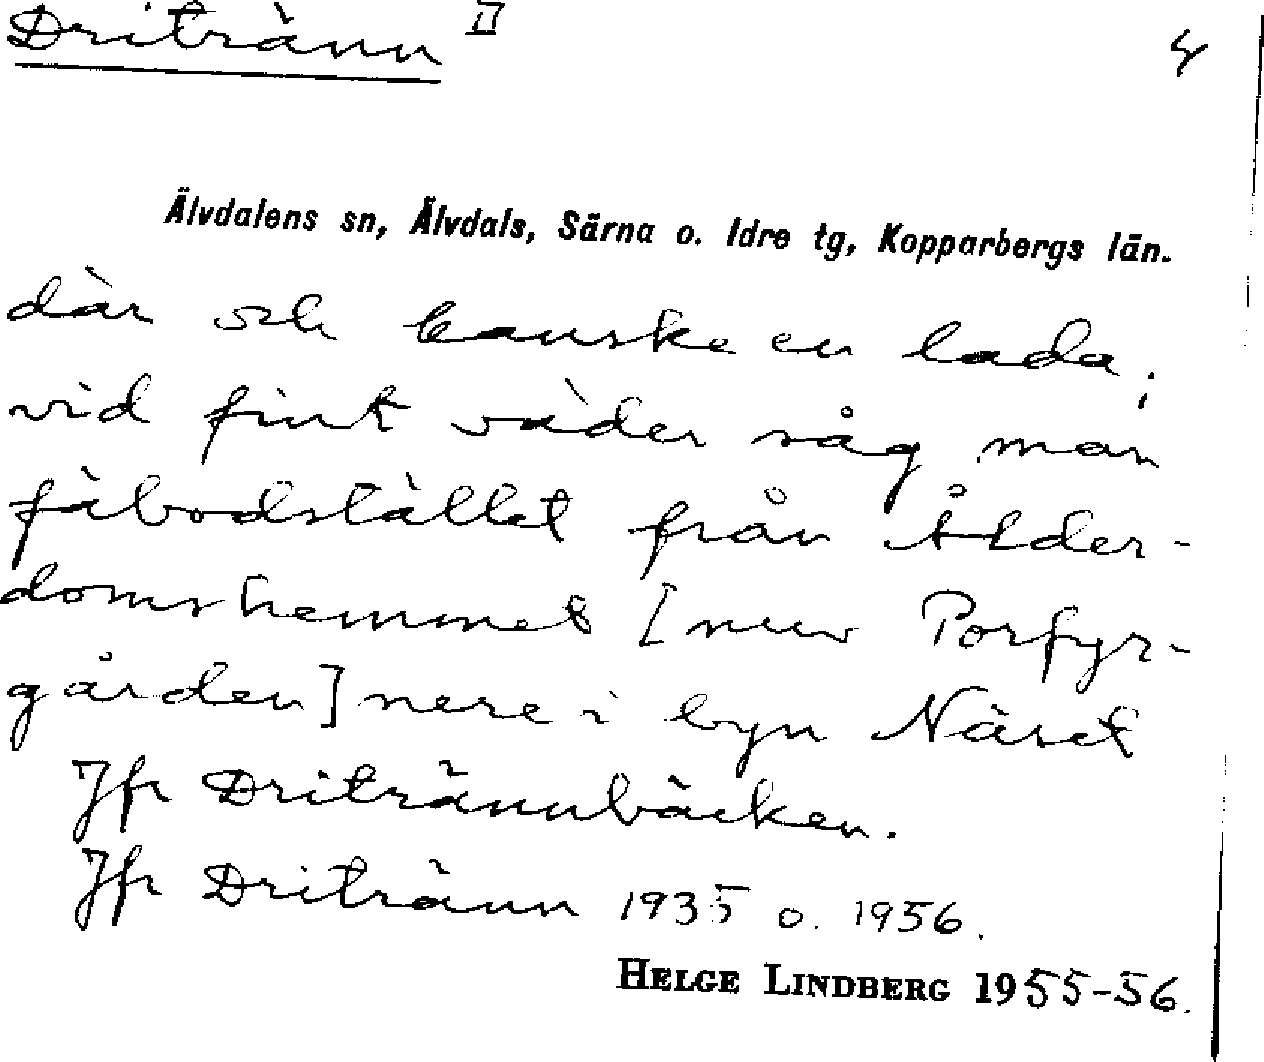 Dritränn II 4
Älvdalens sn, Älvdals, Särna o. Idre tg, Kopparbergs län.
där och kanske en lada;
vid fint väder såg man
fäbodstället från Ålder-
domshemmet [nuv Porfyr-
gården] nere i byn Näset
Jfr Dritrännbäcken.
Jfr Dritränn 1935 o. 1956.
HELGE LINDBERG 1955-56.